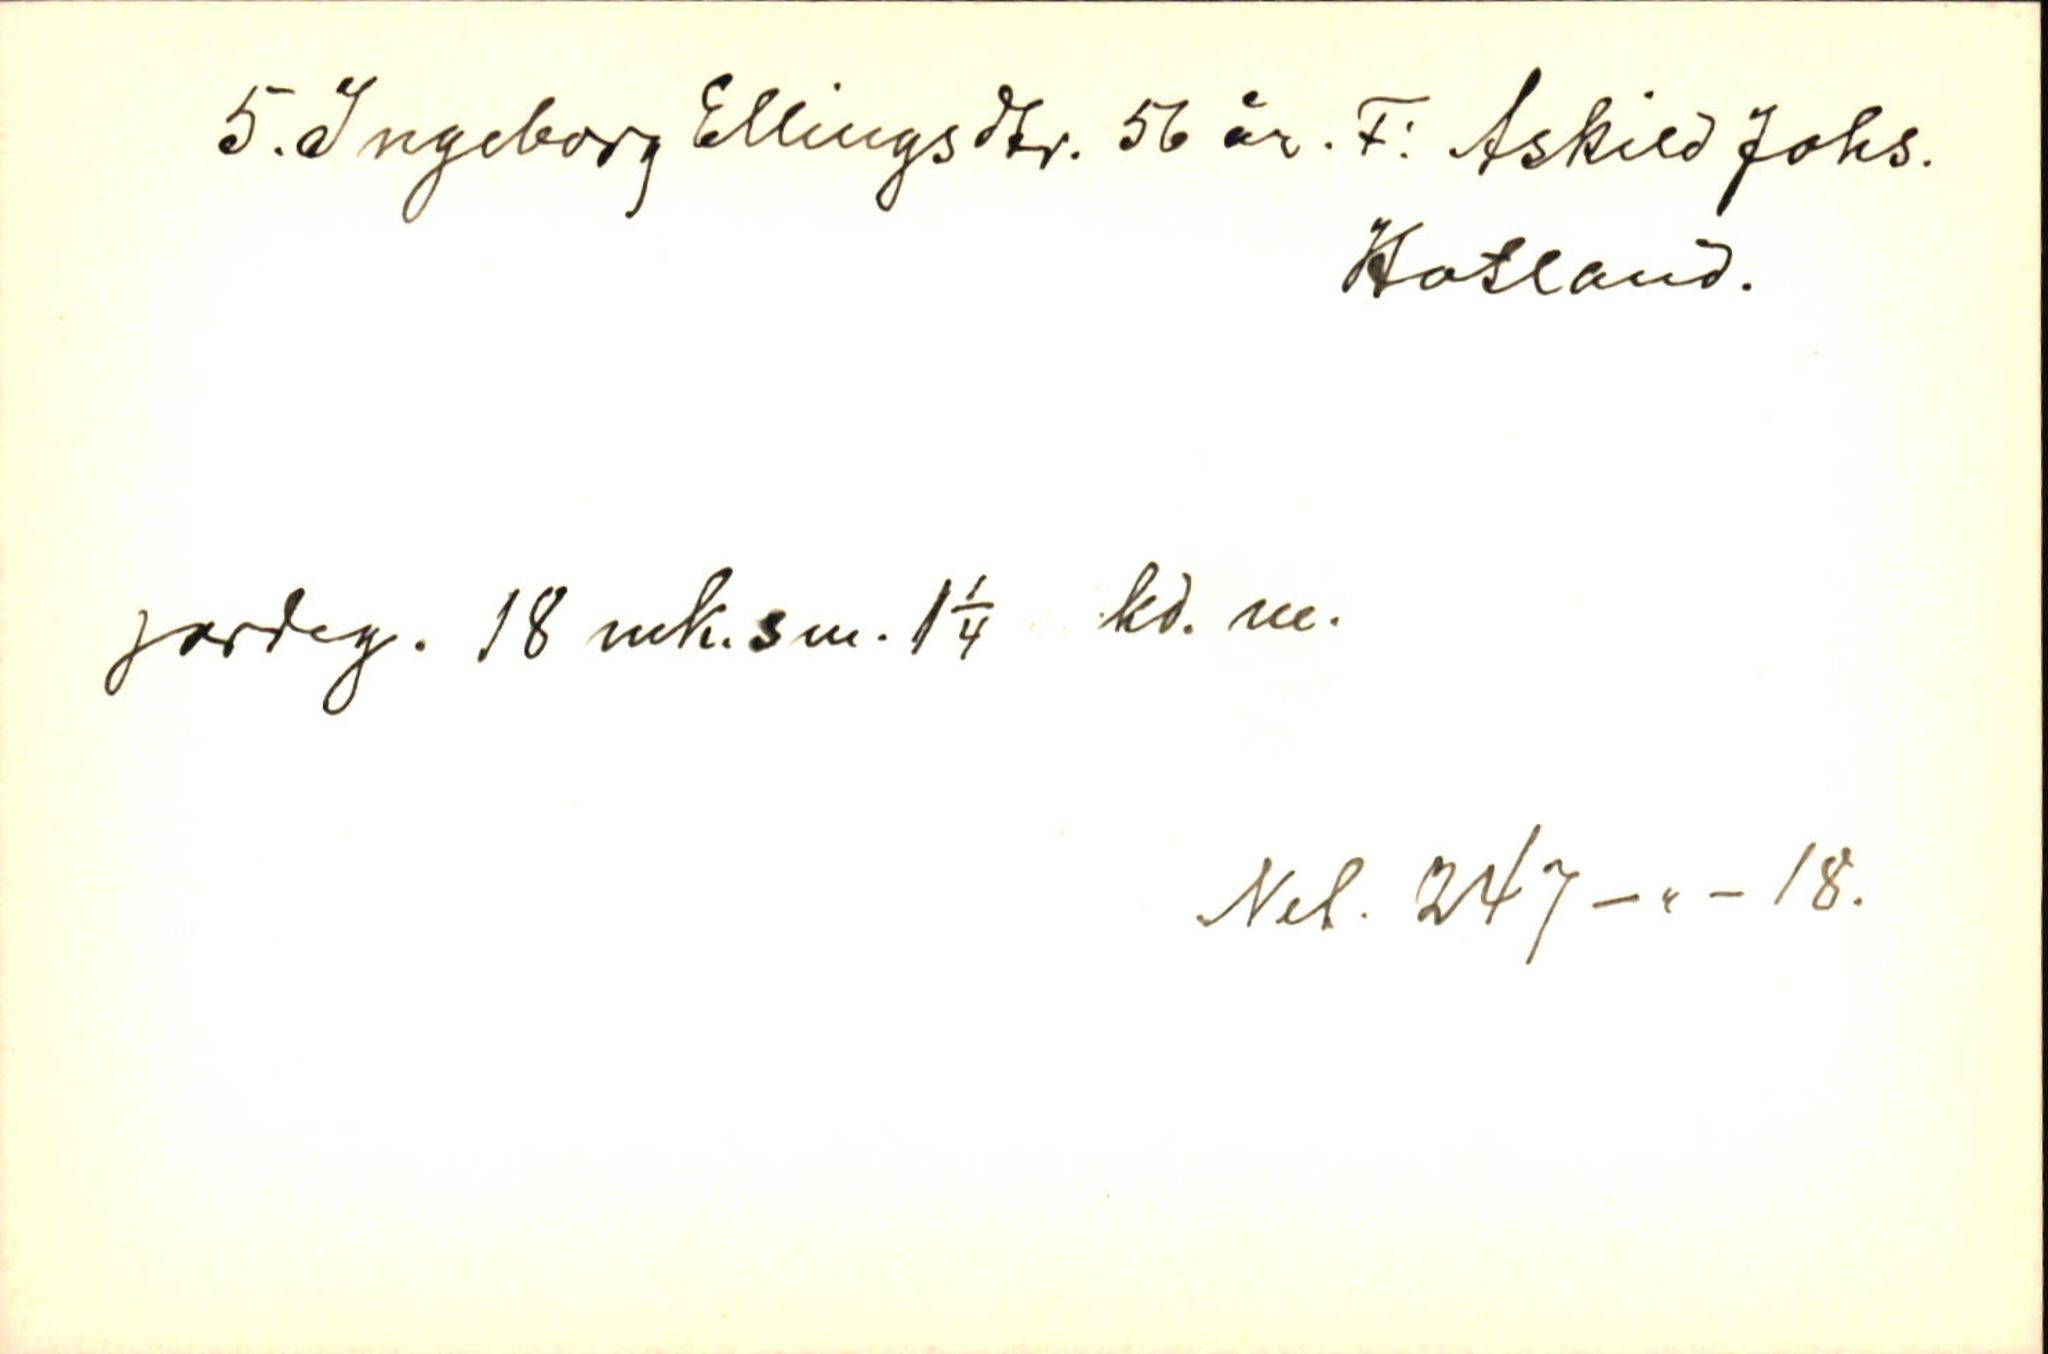 5. Ingeborg Ellingsdtr. 56 år. F: Askild Johs.
Hatland.
jordeg. 18 mk. sm. 1 1/4 hd. m.
Nel. 247 - " - 18.